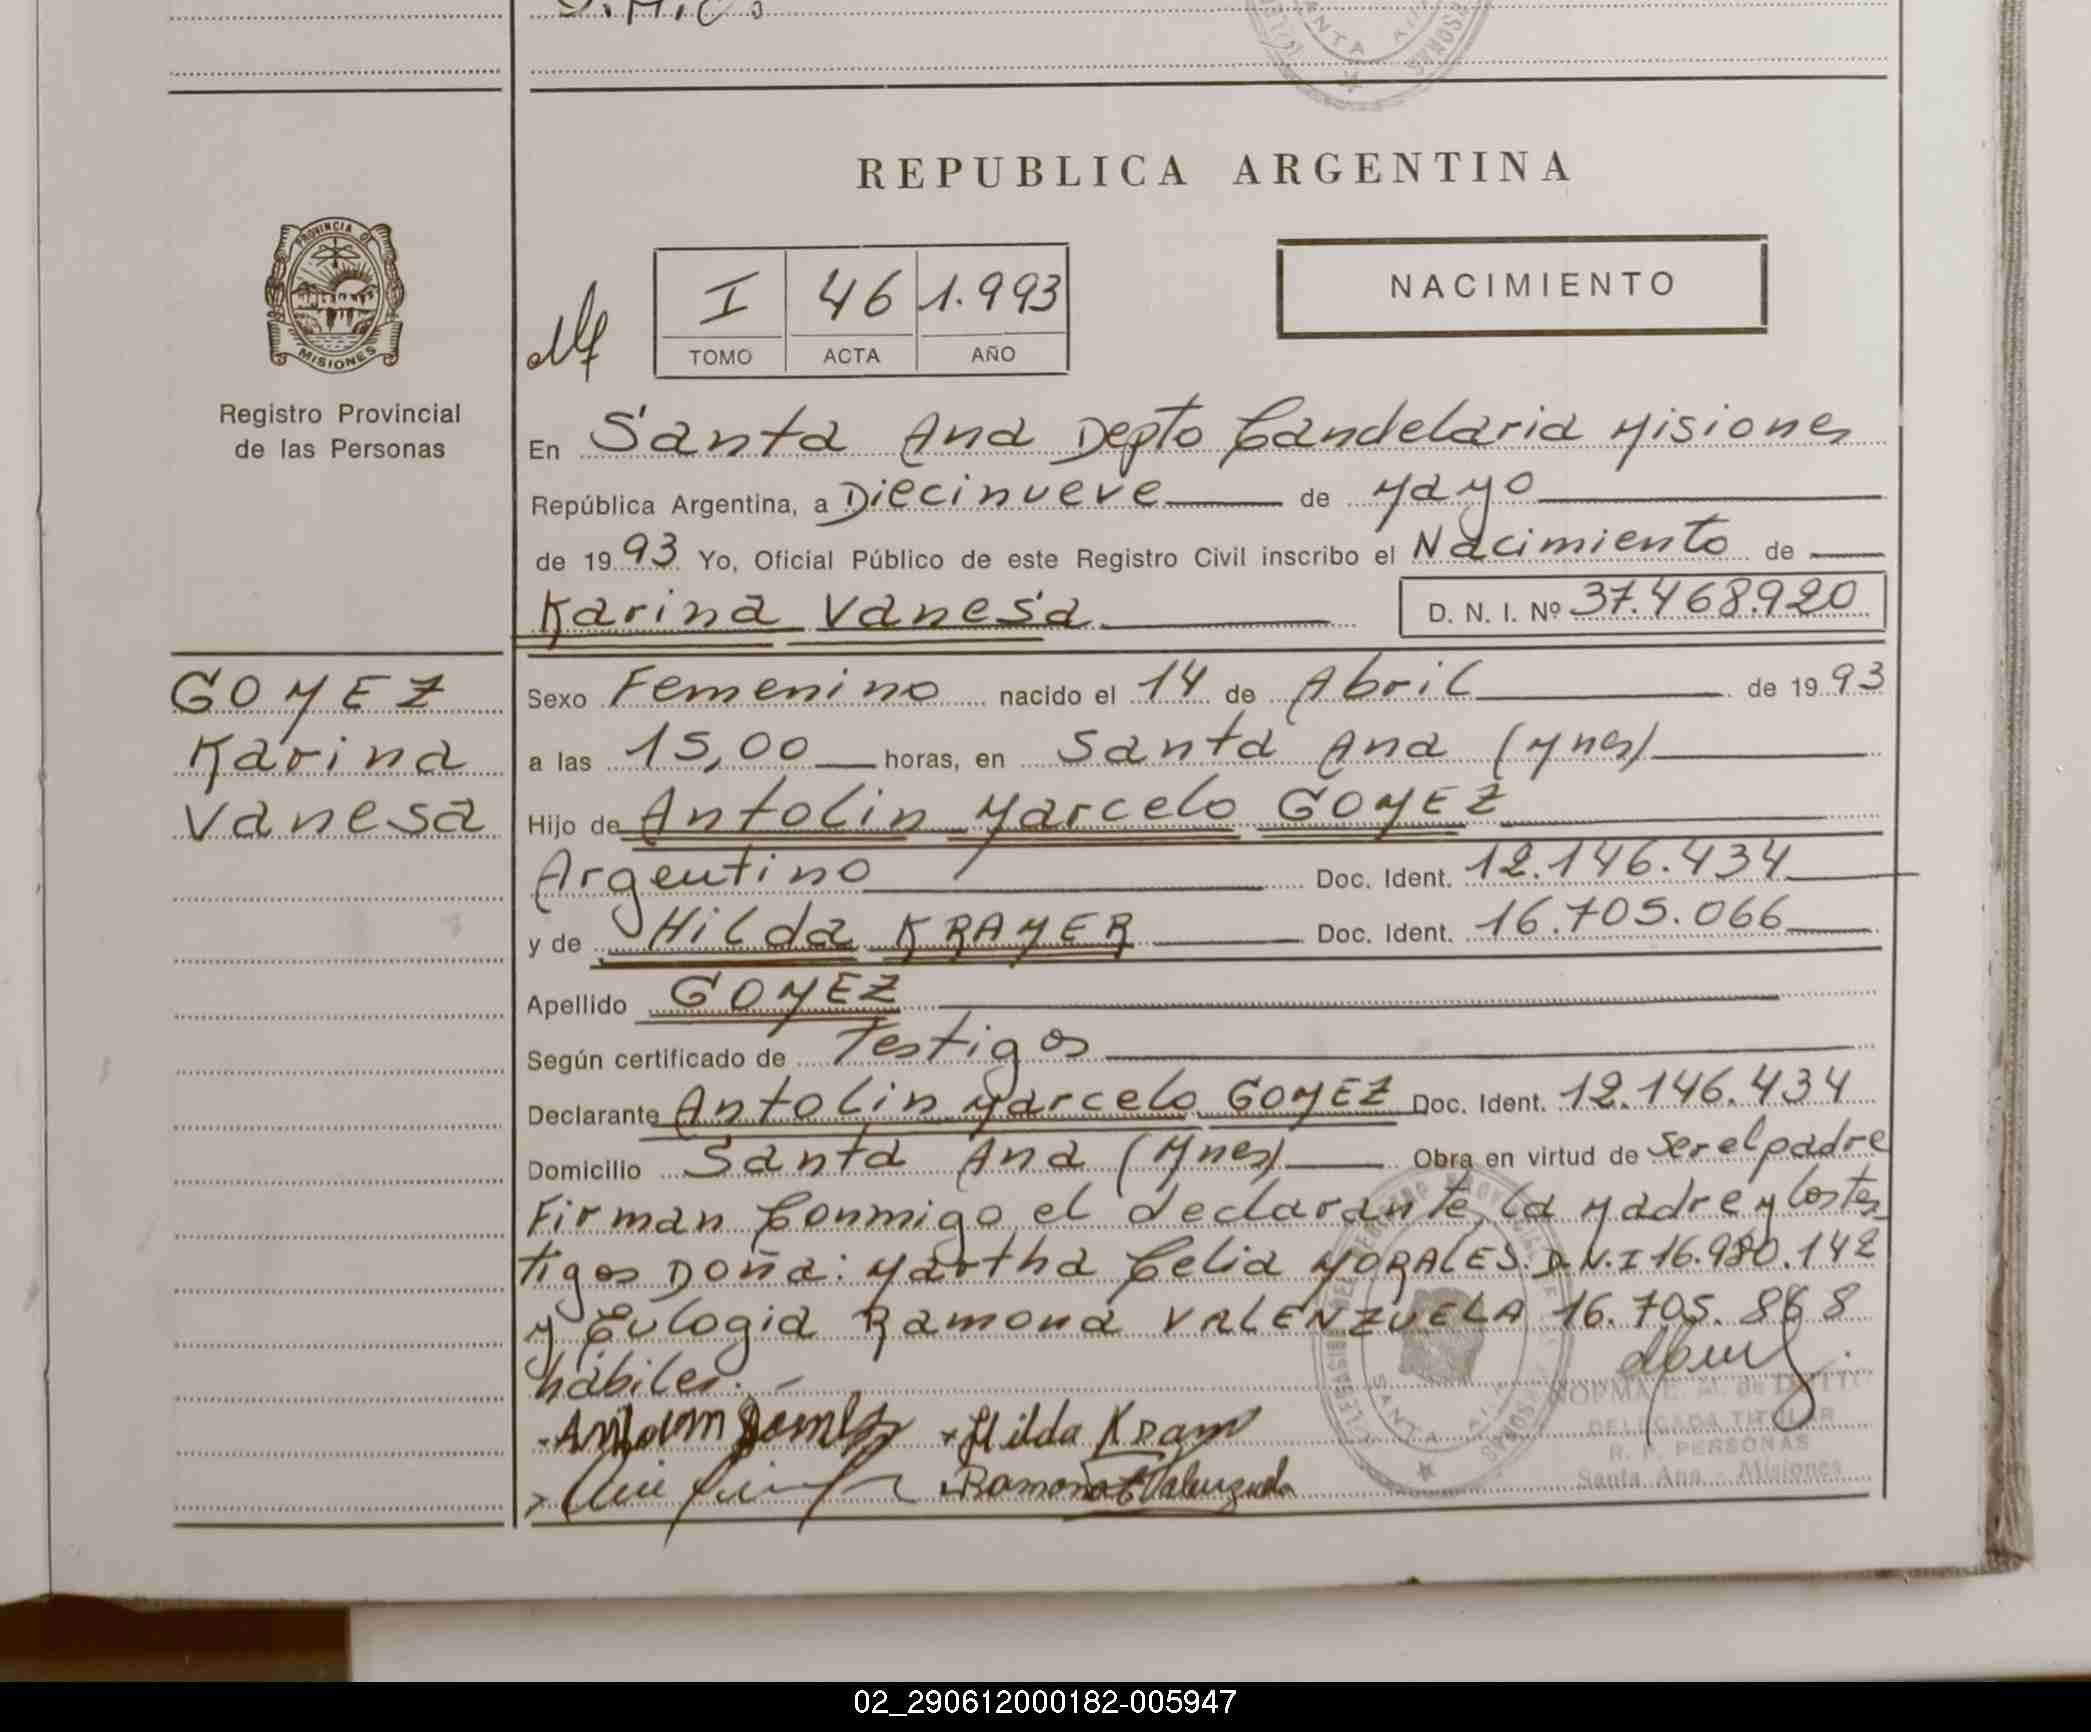 PROVINCIA DE
MISIONES
Registro Provincial
de las Personas
GOMEZ
Karina
Vanesa
REPUBLICA ARGENTINA
I 46 1.993
TOMO ACTA AÑO
NACIMIENTO
En Santa Ana Depto Candelaria Misiones
República Argentina, a Diecinueve de Mayo
de 1993 Yo, Oficial Público de este Registro Civil inscribo el Nacimiento de
Karina Vanesa D. N. I. Nº 37.468.920
Sexo Femenino nacido el 14 de Abril de 1993
a las 15,00 horas, en Santa Ana (Mnes)
Hijo de Antolin Marcelo GOMEZ
Argentino Doc. Ident. 12.146.434
y de Hilda KRAMER Doc. Ident. 16.705.066
Apellido GOMEZ
Según certificado de Testigos
Declarante Antolin Marcelo GOMEZ Doc. Ident. 12.146.434
Domicilio Santa Ana (Mnes) Obra en virtud de ser el padre
Firman Conmigo el declarante, la Madre y los tes
tigos Doña: Martha Celia MORALES. D.N.I 16.980.142
y Eulogia Ramona VALENZUELA 16.705.868
hábiles.-
Hilda Kram
Ramona E Valenzuela
NORMA E. M. de
DELEGADA TITULAR
R. P. PERSONAS
Santa Ana - Misiones
02_290612000182-005947